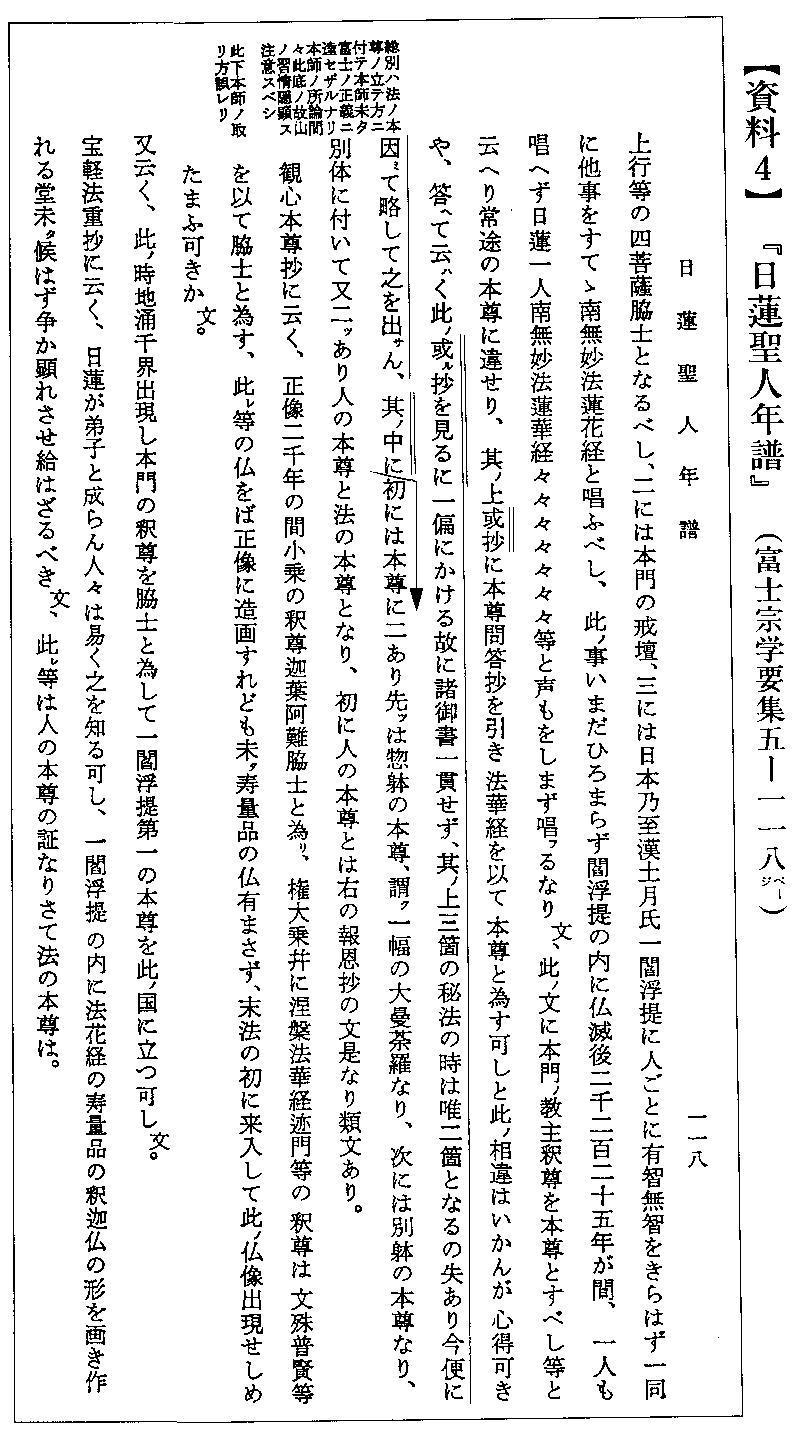 【資料４】 『日蓮聖人年譜』 （富士宗学要集五ー一一八ページ）
日蓮聖人年譜
一一八
上行等の四菩薩脇士となるべし、二には本門の戒壇、三には日本乃至漢土月氏一閻浮提に人ごとに有智無智をきらはず一同
に他事をすてゝ南無妙法蓮花経と唱ふべし、此ノ事いまだひろまらず閻浮提の内に仏滅後二千二百二十五年が間、一人も
唱へず日蓮一人南無妙法蓮華経々々々々々々々等と声もをしまず唱フるなり文、此ノ文に本門ノ教主釈尊を本尊とすべし等と
云へり常途の本尊に違せり、其ノ上或抄に本尊問答抄を引き法華経を以て本尊と為す可しと此ノ相違はいかんが心得可き
や、答ヘて云ハく此ノ或ル抄を見るに一偏にかける故に諸御書一貫せず、其ノ上三箇の秘法の時は唯二箇となるの失あり今便に
因ミて略して之を出サん、其ノ中に初には本尊に二あり先ヅは惣躰の本尊、謂ク一幅の大曼荼羅なり、次には別躰の本尊なり、
別体に付いて又二ツあり人の本尊と法の本尊となり、初に人の本尊とは右の報恩抄の文是なり類文あり。
観心本尊抄に云く、正像二千年の間小乗の釈尊迦葉阿難脇士と為リ、権大乗幷に涅槃法華経迹門等の釈尊は文殊普賢等
を以て脇士と為す、此レ等の仏をば正像に造画すれども未ダ寿量品の仏有まさず、末法の初に来入して此ノ仏像出現せしめ
たまふ可きか文。
又云く、此ノ時地涌千界出現し本門の釈尊を脇士と為して一閻浮提第一の本尊を此ノ国に立つ可し文。
宝軽法重抄に云く、日蓮が弟子と成らん人々は易く之を知る可し、一閻浮提の内に法花経の寿量品の釈迦仏の形を画き作
れる堂未ダ候はず争か顕れさせ給はざるべき文、此レ等は人の本尊の証なりさて法の本尊は。
総別ハ法ノ本
尊ノ立テ方ニ
付テ本師未タ
富士ノ正義ニ
達セザルナリ
本師ノ所論間
々此底ノ故山
ノ習情隠顕ス
注意スベシ
此下本師ノ取
リ方誤レリ